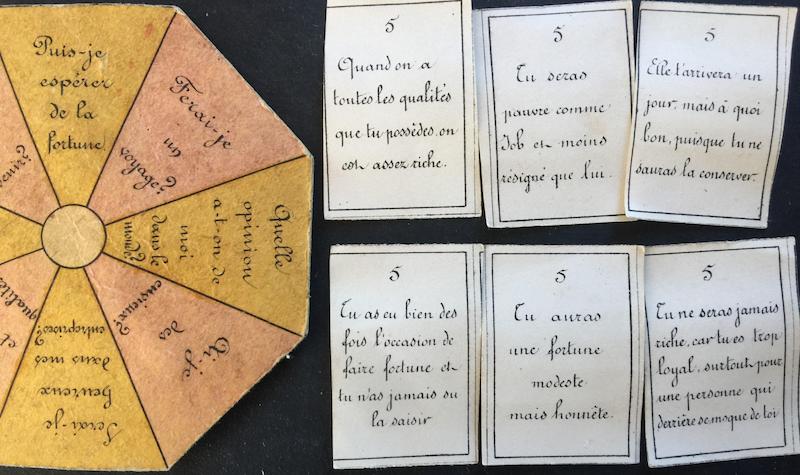 Puis-je
espérer
de la
fortune
Ferai-je
un
voyage?
Quelle
opinion
a-t-on de
moi
dans le
monde?
Ai-je
des
envieux?
Serai-je
heureux
dans mes
entreprises?
et
qualités
5
Quand on a
toutes les qualités
que tu possèdes, on
est assez riche.
5
Tu seras
pauvre comme
Job et moins
résigné que lui.
5
Elle t'arrivera un
jour, mais à quoi
bon, puisque tu ne
sauras la conserver.
5
Tu as eu bien des
fois l'occasion de
faire fortune et
tu n'as jamais su
la saisir
5
Tu auras
une fortune
modeste
mais honnête.
5
Tu ne seras jamais
riche, car tu es trop
loyal, surtout pour
une personne qui
derrière se moque de toi